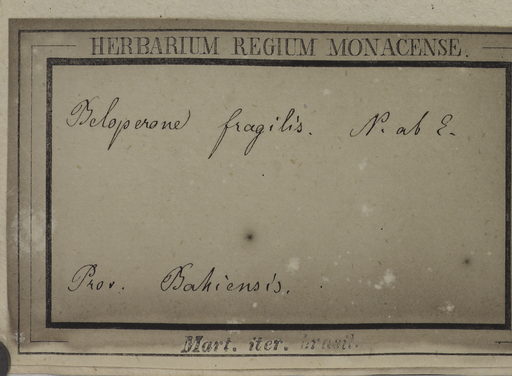 HERBARIUM REGIUM MONACENSE.
Beloperone fragilis. N. ab E.
Prov. Bahiensis.
Mart. iter. brasil.